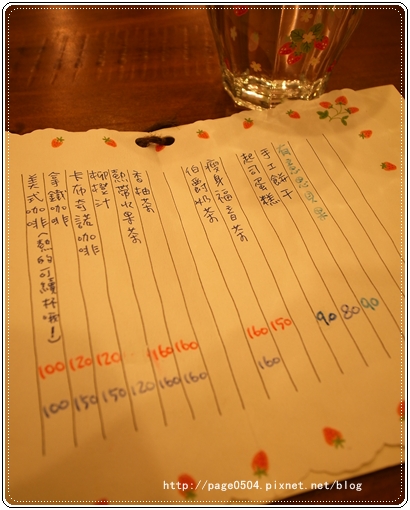 90
手工餅干 80
起司蛋糕 90
瘦身福音茶 150
伯爵奶茶 160 160
香柚茶 160 160
熱帶水果茶 160 160
柳橙汁 120
卡布奇諾咖啡 120 150
拿鐵咖啡 120 150
美式咖啡(熱的可續杯喔!) 100 100
http://page0504.pixnet.net/blog